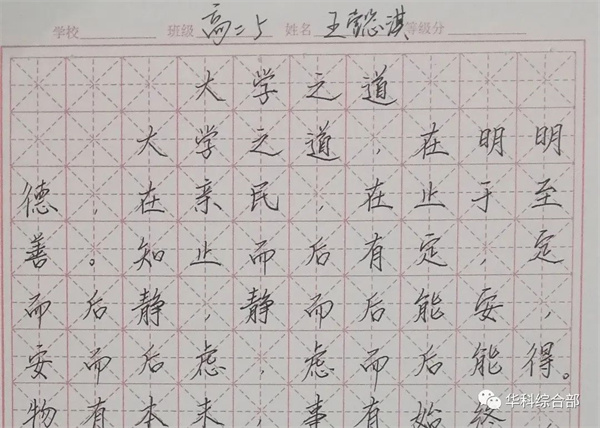 学校 班级 高二5 姓名 王懿淇 等级分
大学之道
大学之道，在明明
德，在亲民，在止于至
善。知止而后有定，定
而后静，静而后能安，
安而后虑，虑而后能得。
物有本来，事有始终，
华科综合部